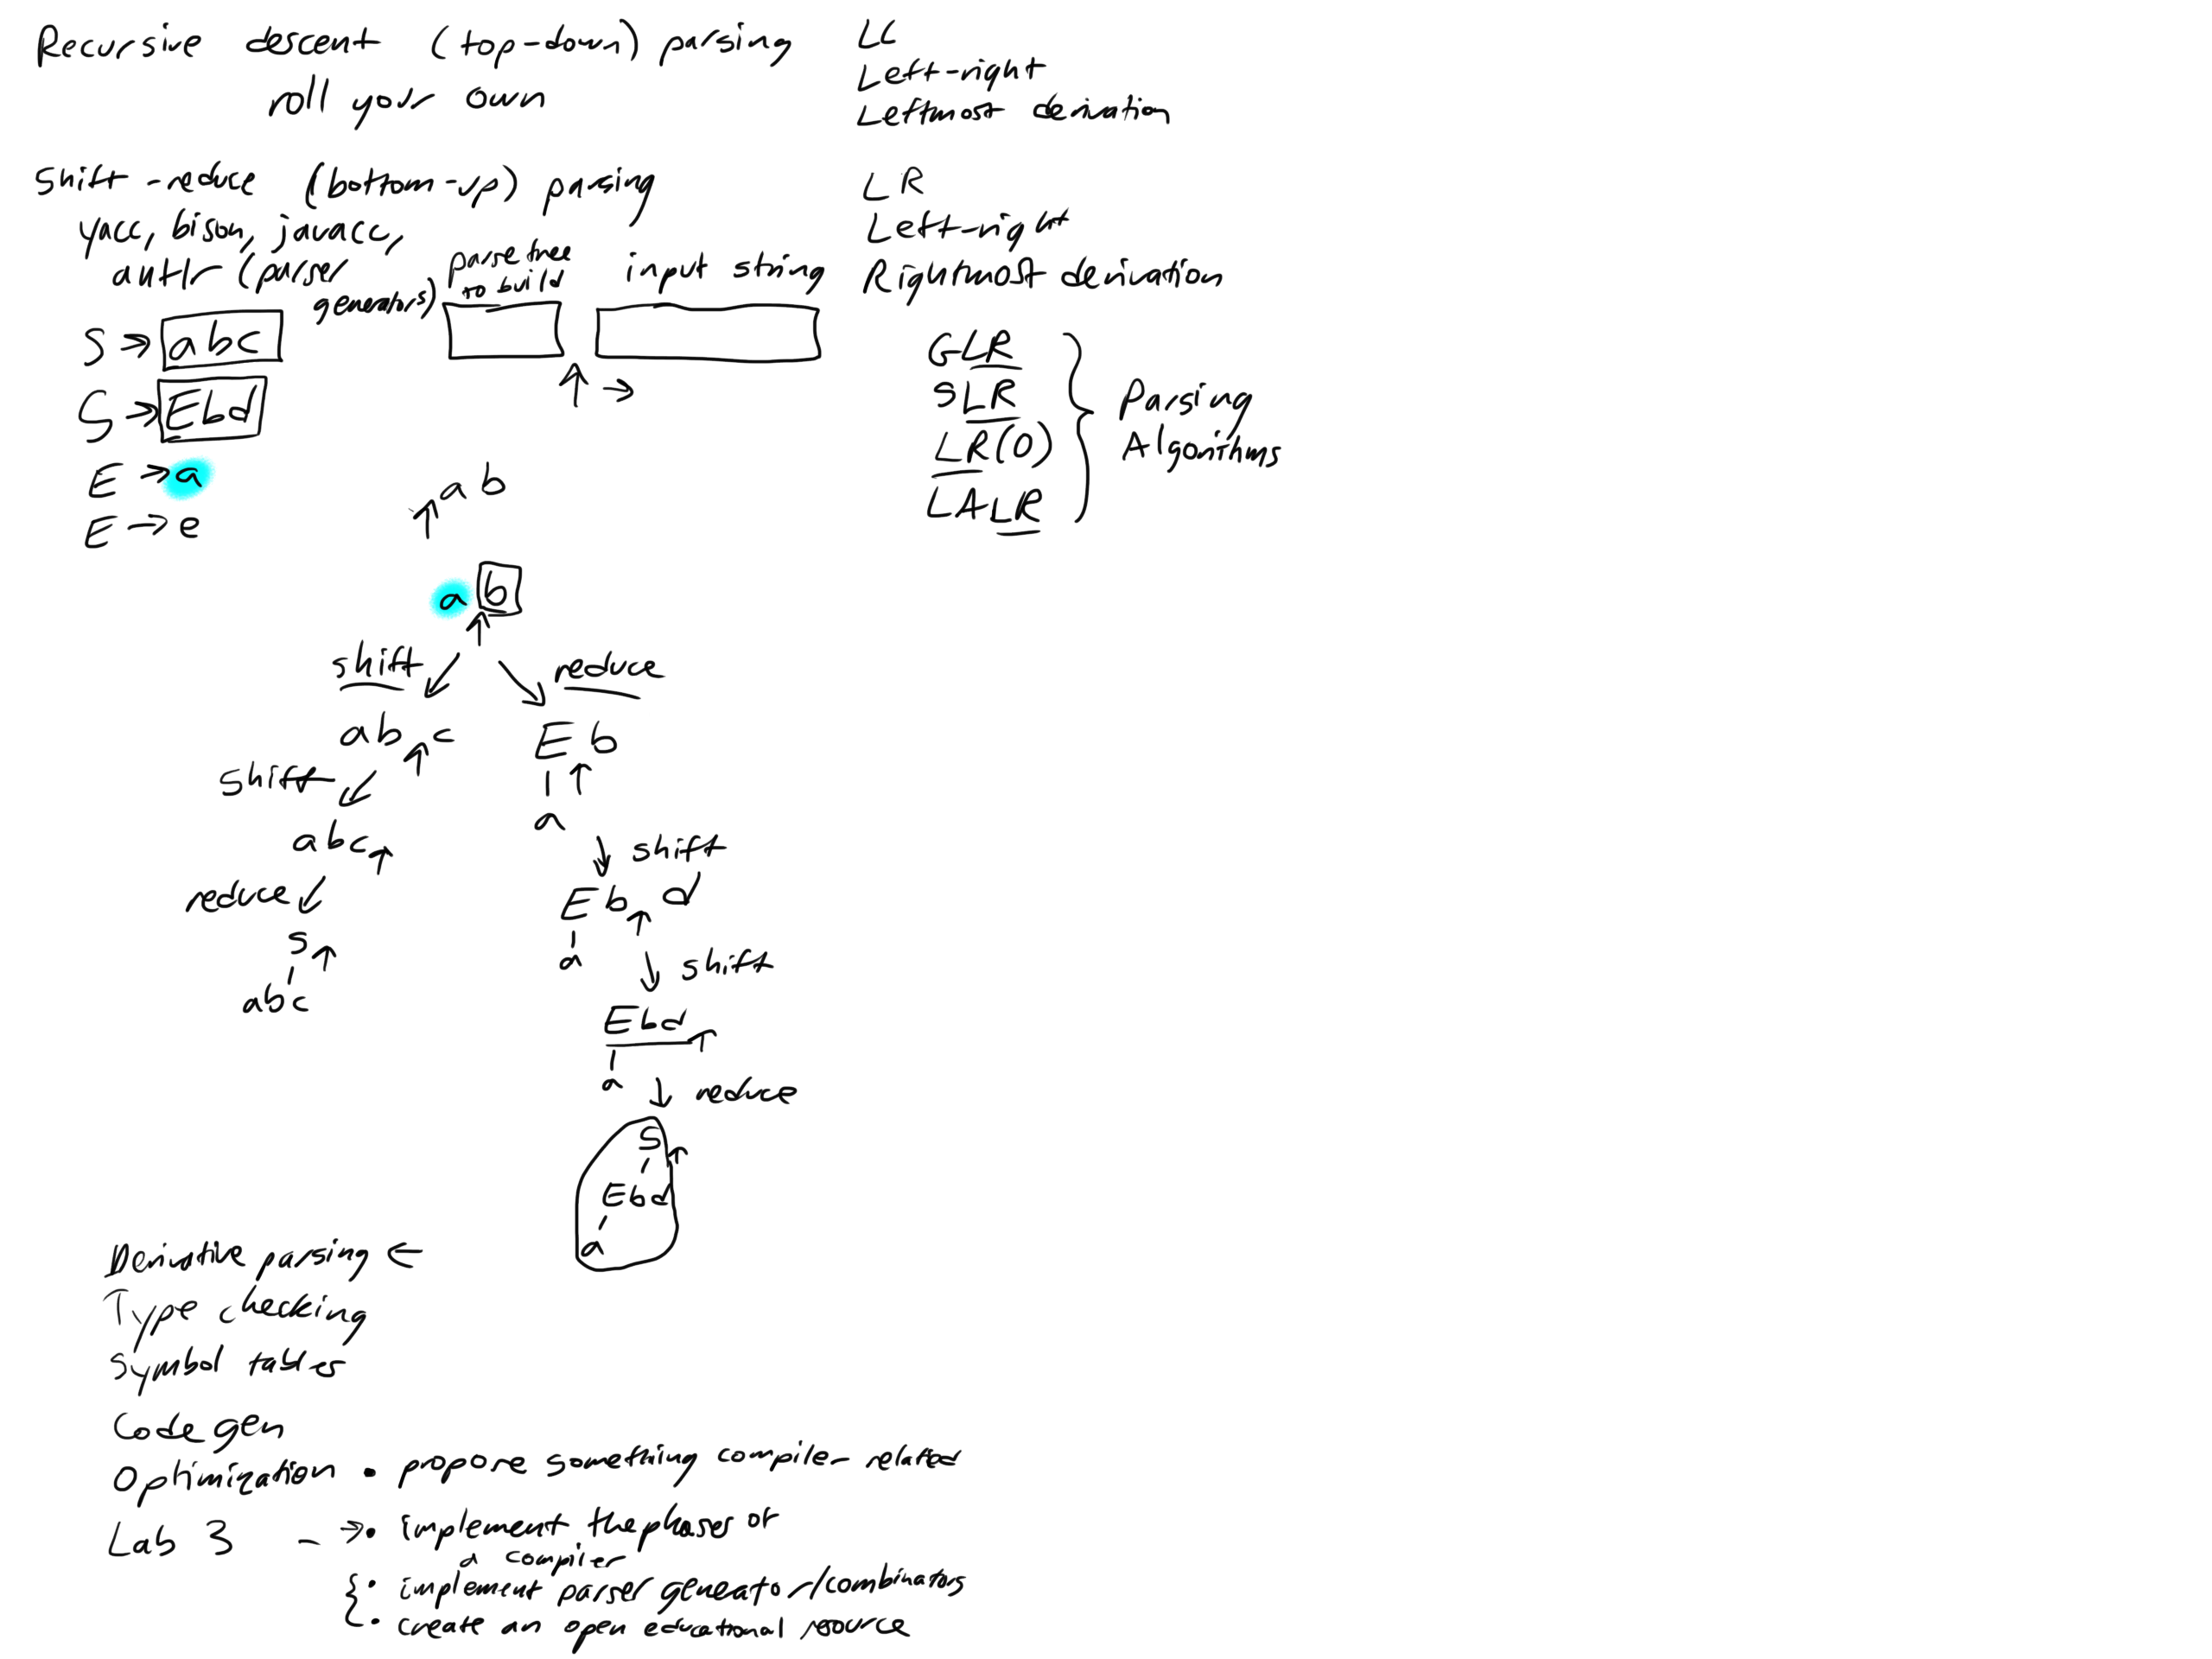 Recursive descent (top-down) parsing
roll your own
LL
Left-right
Leftmost derivation
Shift-reduce (bottom-up) parsing
yacc, bison, javacc,
antlr (parser
generators)
LR
Left-right
Rightmost derivation
parse tree
to build
input string
S → abc
S → Ebd
E → a
E → e
GLR
SLR
LR(0)
LALR
Parsing
Algorithms
↑ a b
a b
↑
shift
reduce
ab ↑ c
E b
↑
a
shift
abc ↑
shift
E b ↑ d
a
reduce
S ↑
abc
shift
Ebd ↑
a
reduce
S ↑
Ebd
a
Derivative parsing ←
Type checking
Symbol tables
Code gen
Optimization • propose something compiler-related
Lab 3 - → • implement the phases of
a compiler
{ • implement parser generator/combinators
• create an open educational resource